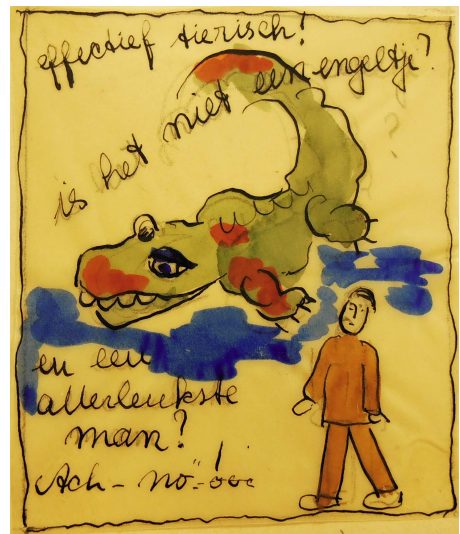 effectief tierisch!
is het niet een engeltje?
en een
allerleukste
man?
Ach - nö - öö